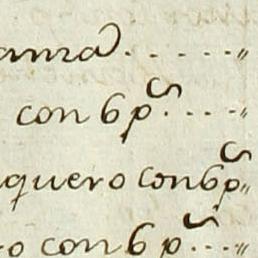 anza . . . . . . "
con 6 p.s . . . . "
quero con 6 p.s "
o con 6 p.s . . . "